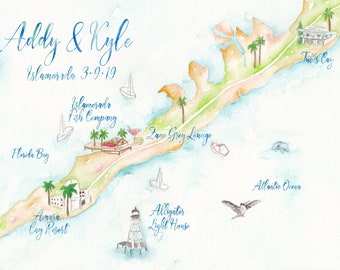 Addy & Kyle
Islamorada 3-9-19
Islamorada
Fish Company
Zane Grey Lounge
Florida Bay
Amara
Cay Resort
Alligator
Light House
Atlantic Ocean